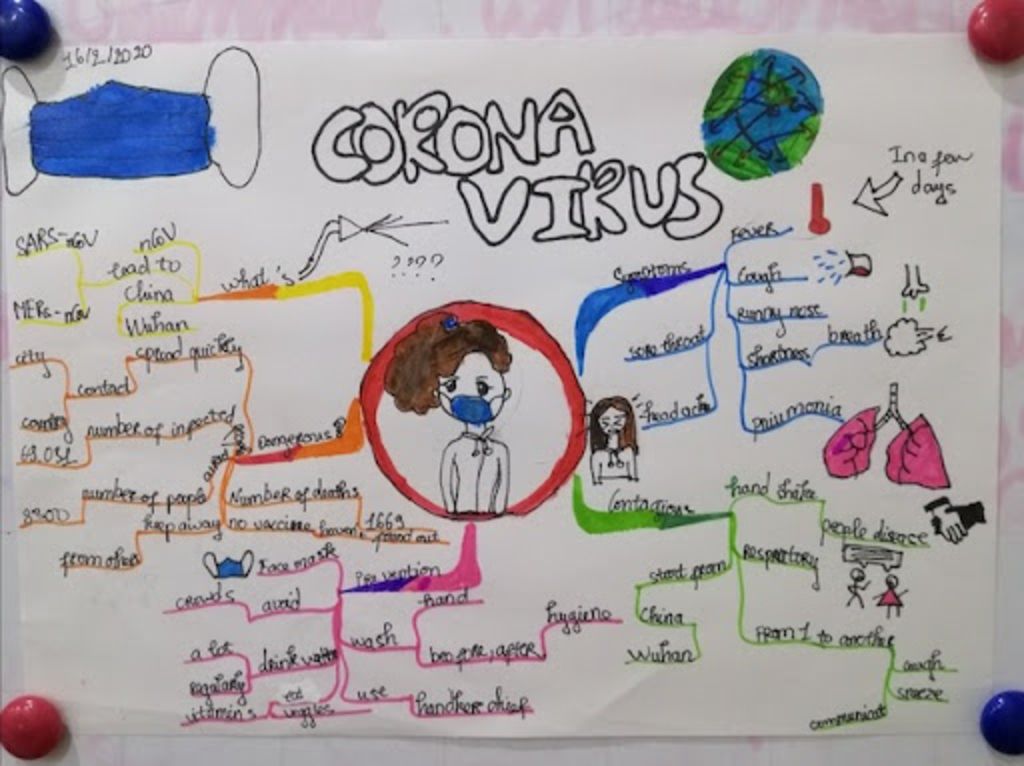 16/2/2020
CORONA
VIRUS
In a few
days
SARS-nCoV
nCoV
lead to
MERs-nCoV
China
Wuhan
what's
????
city
country
contact
spread quickly
number of infected
69.031
Dangerous
number of people
8800
Number of deaths
1669
keep away
from other
no vaccine
found out
Symptoms
Fever
Cough
Runny nose
shortness
breath
pniumonia
sore throat
headach
Contagious
hand shake
people disease
Respirtory
start from
China
Wuhan
From 1 to another
cough
sneeze
communicat
Prevention
Face mask
avoid
crowds
wash
hand
before, after
hygiene
drink water
a lot
regularly
eat
veggies
vitamin's
use
handkerchief